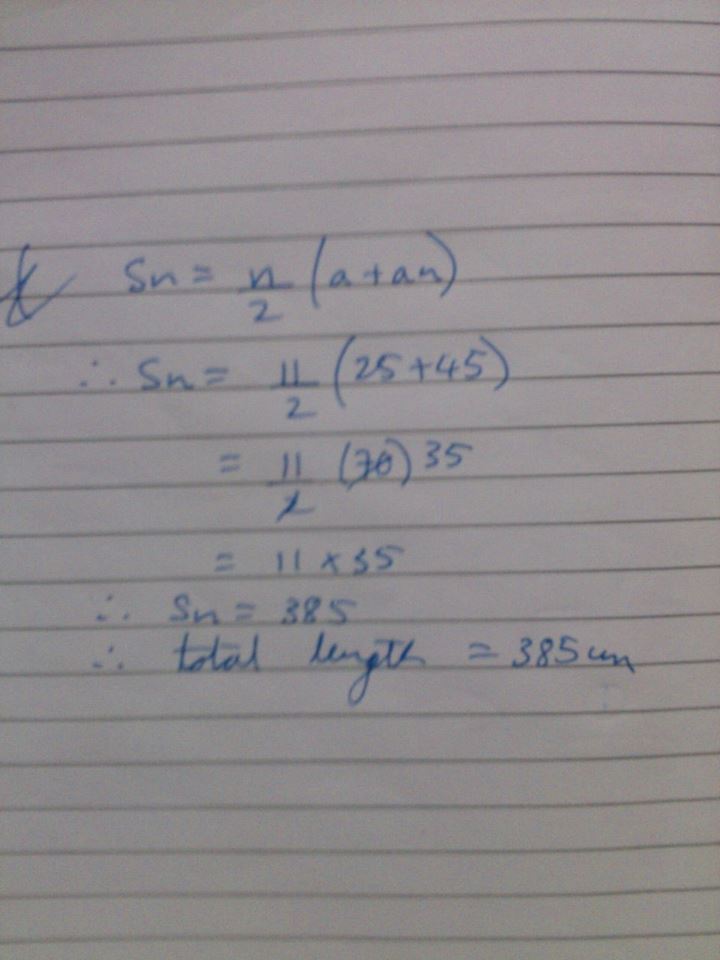 & Sn = n/2 (a + an)
∴ Sn = 11/2 (25+45)
= 11/2 (70) 35
= 11 × 35
∴ Sn = 385
∴ total length = 385 cm